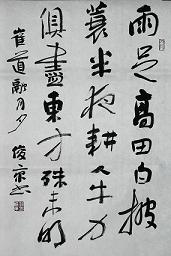 雨足高田白披
蓑半夜耕人牛力
俱盡東方殊未明
崔道融